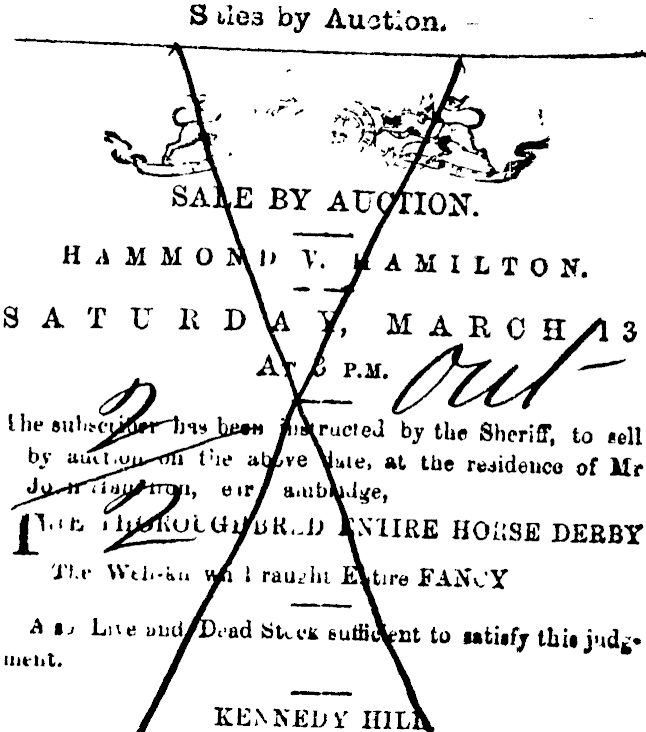 Sales by Auction.
SALE BY AUCTION.
HAMMOND V. HAMILTON.
SATURDAY, MARCH 13
AT 3 P.M.
out
2
The subscriber has been instructed by the Sheriff, to sell
by auction on the above date, at the residence of Mr
Hamilton,
2
THE THOROUGHBRED ENTIRE HORSE DERBY
The Draught Entire FANCY
Also Live and Dead Stock sufficient to satisfy this judg-
ment.
KENNEDY HILL